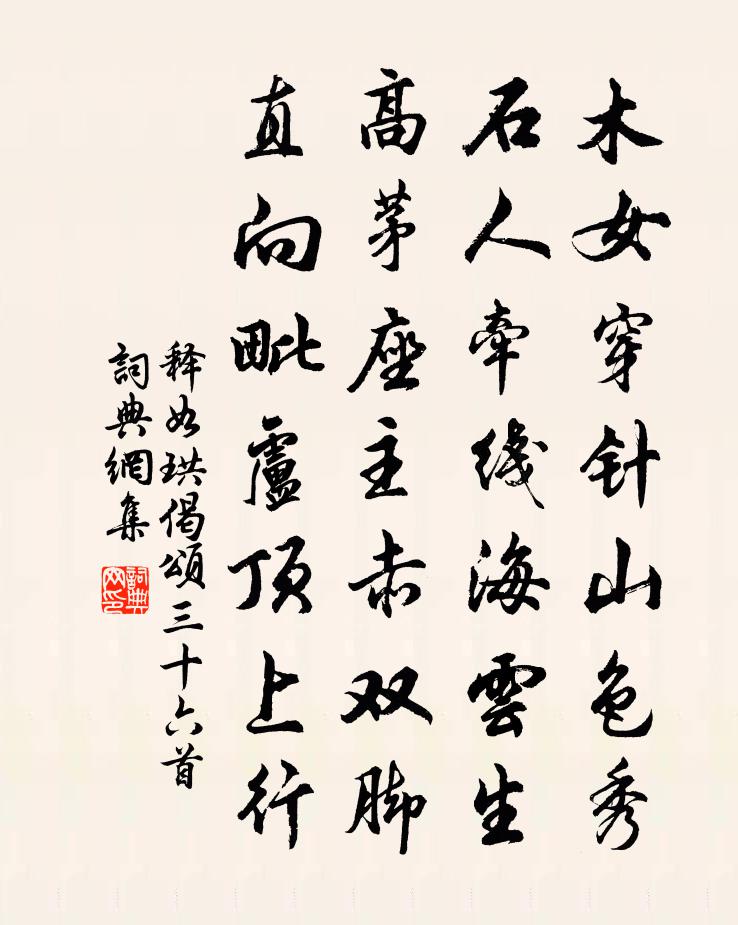 木女穿针山色秀
石人牵线海雲生
高茅座主赤双脚
直向毗盧顶上行
释如珙偈頌三十六首
詞典網集
詞典網印